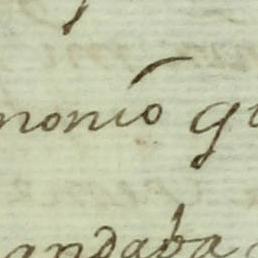 monio qu
andaba